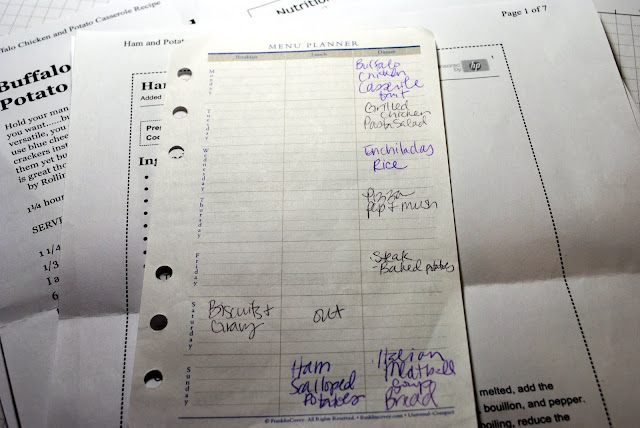 Talo Chicken and Potato Casserole Recipe
Buffalo
Potato
Hold your man
you want......bu
versatile, you
use blue chee
crackers inst
them yet bu
is great tho
by Rollin
1¼ hour
SERVE
1 1/4
1/3
1 a
6
Ham and Potato
Ham
Added
Prep
Coo
Ing
Nutrition
Page 1 of 7
hp
MENU PLANNER
Breakfast
Lunch
Dinner
Monday
Buffalo
Chicken
Casserole
fruit
Tuesday
Grilled
Chicken
Pasta Salad
Wednesday
Enchiladas
Rice
Thursday
Pizza
pep + mush
Friday
Steak
-Baked potatoes
Saturday
Biscuits +
Gravy
out
Sunday
Ham
Scalloped
Potatoes
Italian
Meatball
Soup
Bread
© FranklinCovey. All Rights Reserved. • franklincovey.com • Universal-Compact
melted, add the
bouillon, and pepper.
boiling, reduce the